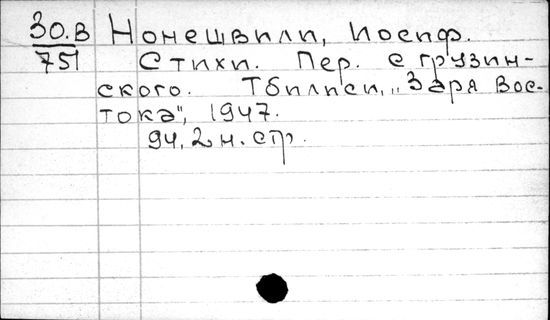 30.В
751
Нонешвили, Иосиф.
Стихи. Пер. с грузин-
ского. Тбилиси, „Заря Вос-
тока", 1947.
94, 2 н. стр.